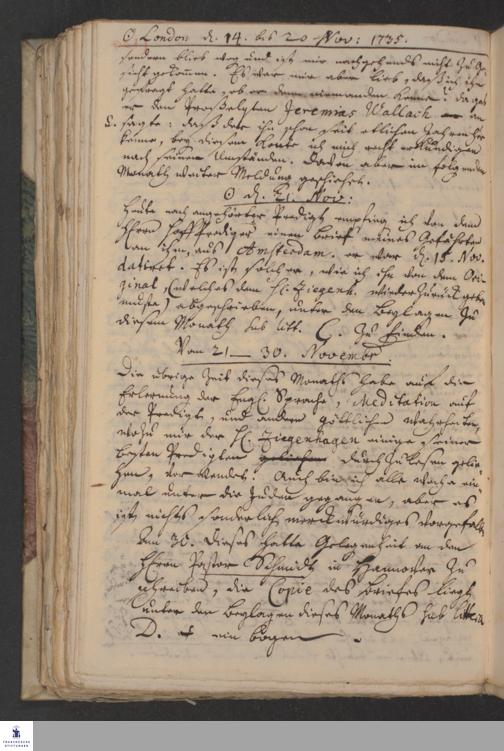 ☉ London d. 14. bis 20 Nov: 1735.
sondern blieb weg und ist mir nachgehends nicht zu Ge-
sicht gekommen. Es war mir aber lieb, daß ich ihn
gefragt hatte, ob er denn niemanden kenne? da gab
er den Proselyten Jeremias Wallach an
u. sagte: daß der ihn schon seit etlichen Jahren her
kenne, bey diesem konte ich mich recht erkundigen
nach seinen Umständen. Davon aber im folgenden
Monath weiter Meldung geschiehet.
☉ d. 21. Nov:
Heute nach angehörter Predigt empfing ich von dem
Herrn Hoff Prediger einen Brief meines Gefährten
an ihn, aus Amsterdam. er war d. 18. Nov.
datiret. Es ist solcher, wie ich ihn von dem Ori-
ginal, (welches dem H. Ziegenh. wieder zurück geben
muste) abgeschrieben, unter den Beylagen zu
diesem Monath sub litt. C. zu finden.
Vom 21 — 30. Novembr.
Die übrige Zeit dieses Monaths habe auf die
Erlernung der Engl. Sprache, Meditation auf
der Predigt, und andern göttlichen Wahrheiten,
wozu mir der H. Ziegenhagen einige seiner
besten Predigten durchzulesen gelie-
hen, verwendet. Auch bin ich alle Woche ein-
mal unter die Juden gegangen, aber es
ist nichts sonderlich merckwürdiges vorgefallen
Am 30. dieses hatte Gelegenheit an den
Herrn Pastor Schmidt in Hannover zu
schreiben, die Copie des Briefes liegt
unter den Beylagen dieses Monaths sub litera
D. ein bogen
FRANCKESCHE
STIFTUNGEN